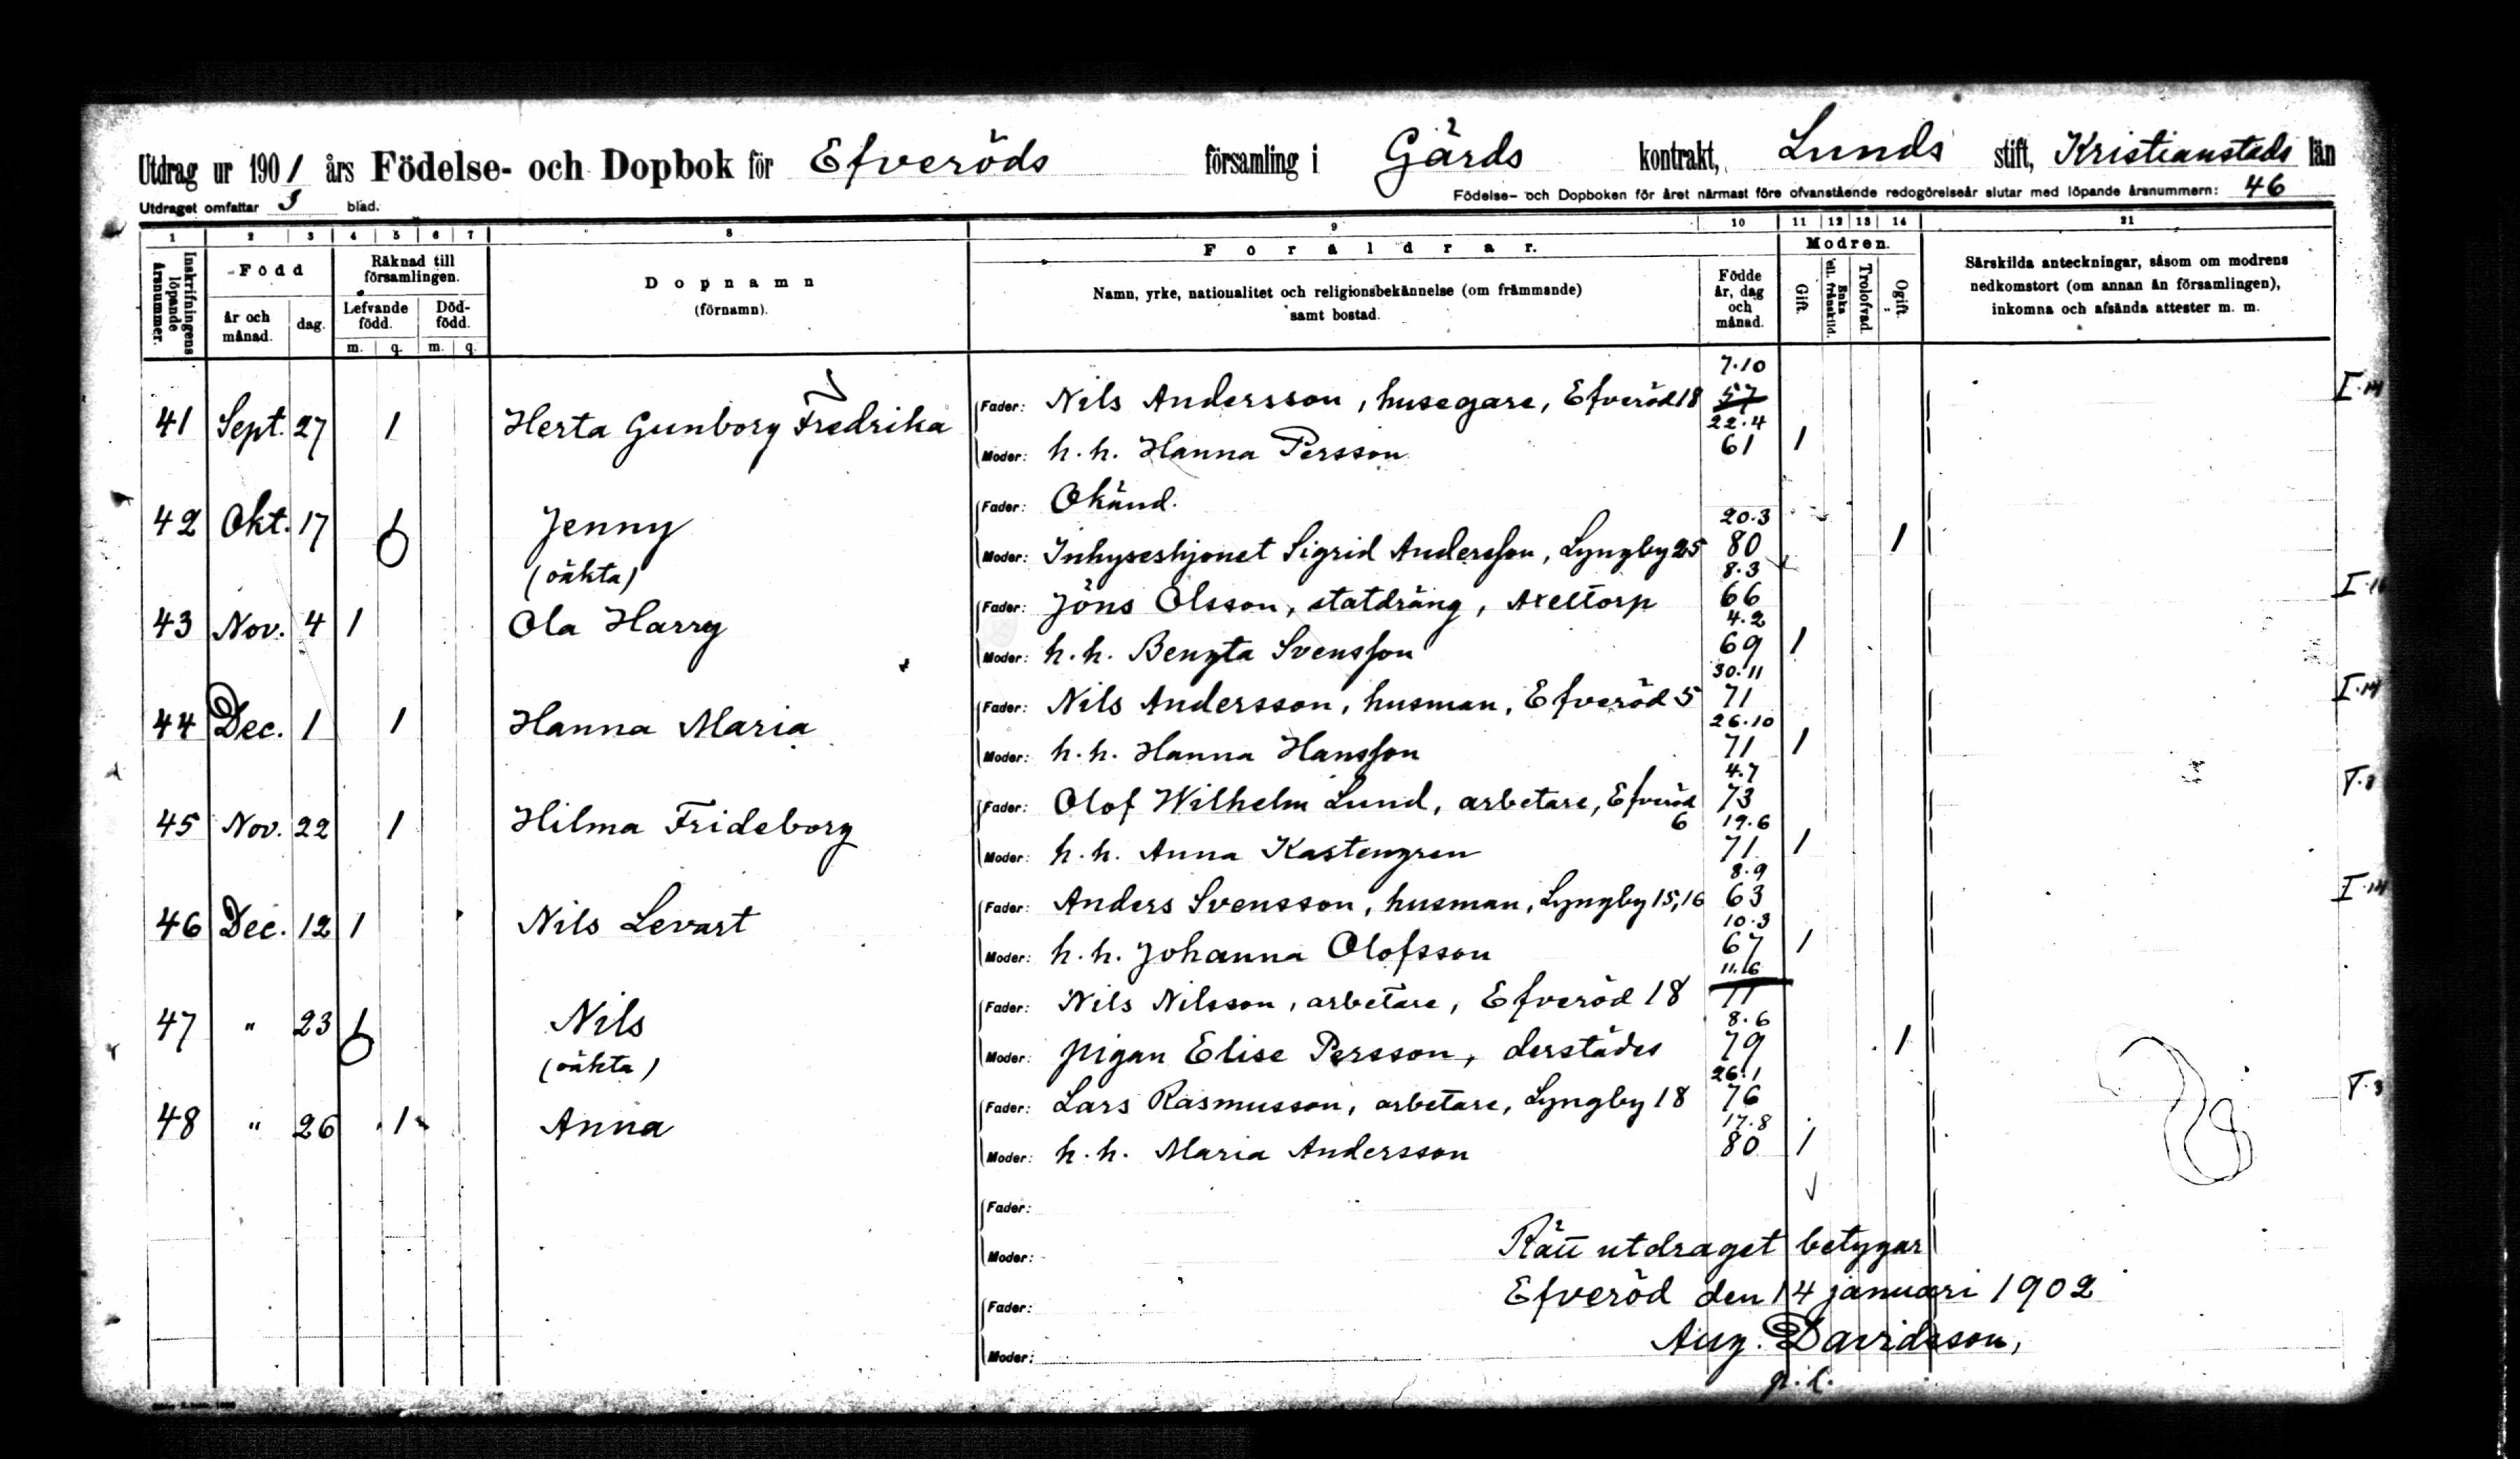 Utdrag ur 1901 års Födelse- och Dopbok för Efveröds församling i Gärds kontrakt, Lunds stift, Kristianstads län
Utdraget omfattar 5 blad.
Födelse- och Dopboken för året närmast före ofvanstående redogörelseår slutar med löpande årsnummern: 46
1 2 3 4 5 6 7 8 9 10 11 12 13 14 21
Inskrifningens löpande årsnummer.
Född
år och månad.
dag.
Räknad till församlingen.
Lefvande född.
Död-född.
m. q. m. q.
Dopnamn
(förnamn).
Föräldrar.
Namn, yrke, nationalitet och religionsbekännelse (om främmande)
samt bostad.
Födde år, dag och månad.
Modren.
Gift.
Enka ell. frånskild.
Trolofvad.
Ogift.
Särskilda anteckningar, såsom om modrens
nedkomstort (om annan än församlingen),
inkomna och afsända attester m. m.
41 Sept. 27 1 Herta Gunborg Fredrika
Fader: Nils Andersson, husegare, Efveröd 18 7.10 57 I.14
Moder: h. h. Hanna Persson 22.4 61 1
42 Okt. 17 1 Jenny
(oäkta)
Fader: Okänd.
Moder: Inhyseshjonet Sigrid Andersson, Lyngby 25 20.3 80 1
43 Nov. 4 1 Ola Harry
Fader: Jöns Olsson, statdräng, Axeltorp 8.3 66
Moder: h. h. Bengta Svensson 4.2 69 1
44 Dec. 1 1 Hanna Maria
Fader: Nils Andersson, husman, Efveröd 5 30.11 71 I.14
Moder: h. h. Hanna Hansson 26.10 71 1
45 Nov. 22 1 Hilma Frideborg
Fader: Olof Wilhelm Lund, arbetare, Efveröd 6 4.7 73
Moder: h. h. Anna Kastengren 19.6 71 1
46 Dec. 12 1 Nils Levart
Fader: Anders Svensson, husman, Lyngby 15,16 8.9 63 I.14
Moder: h. h. Johanna Olofsson 10.3 67 1
47 " 23 1 Nils
(oäkta)
Fader: Nils Nilsson, arbetare, Efveröd 18 11.6 77
Moder: pigan Elise Persson, derstädes 8.6 79 1
48 " 26 1 Anna
Fader: Lars Rasmusson, arbetare, Lyngby 18 26.1 76
Moder: h. h. Maria Andersson 17.8 80 1
Fader:
Moder:
Fader:
Moder:
Rätt utdraget betygar
Efveröd den 14 januari 1902
Aug. Davidsson,
p. l.